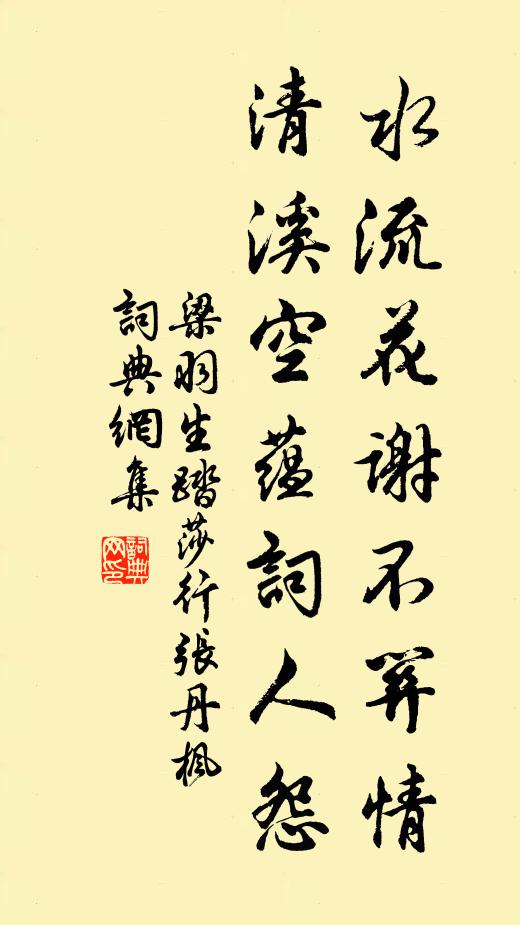 水流花谢不関情
清溪空蕴詞人怨
梁羽生踏莎行張丹楓
詞典網集
詞典网印